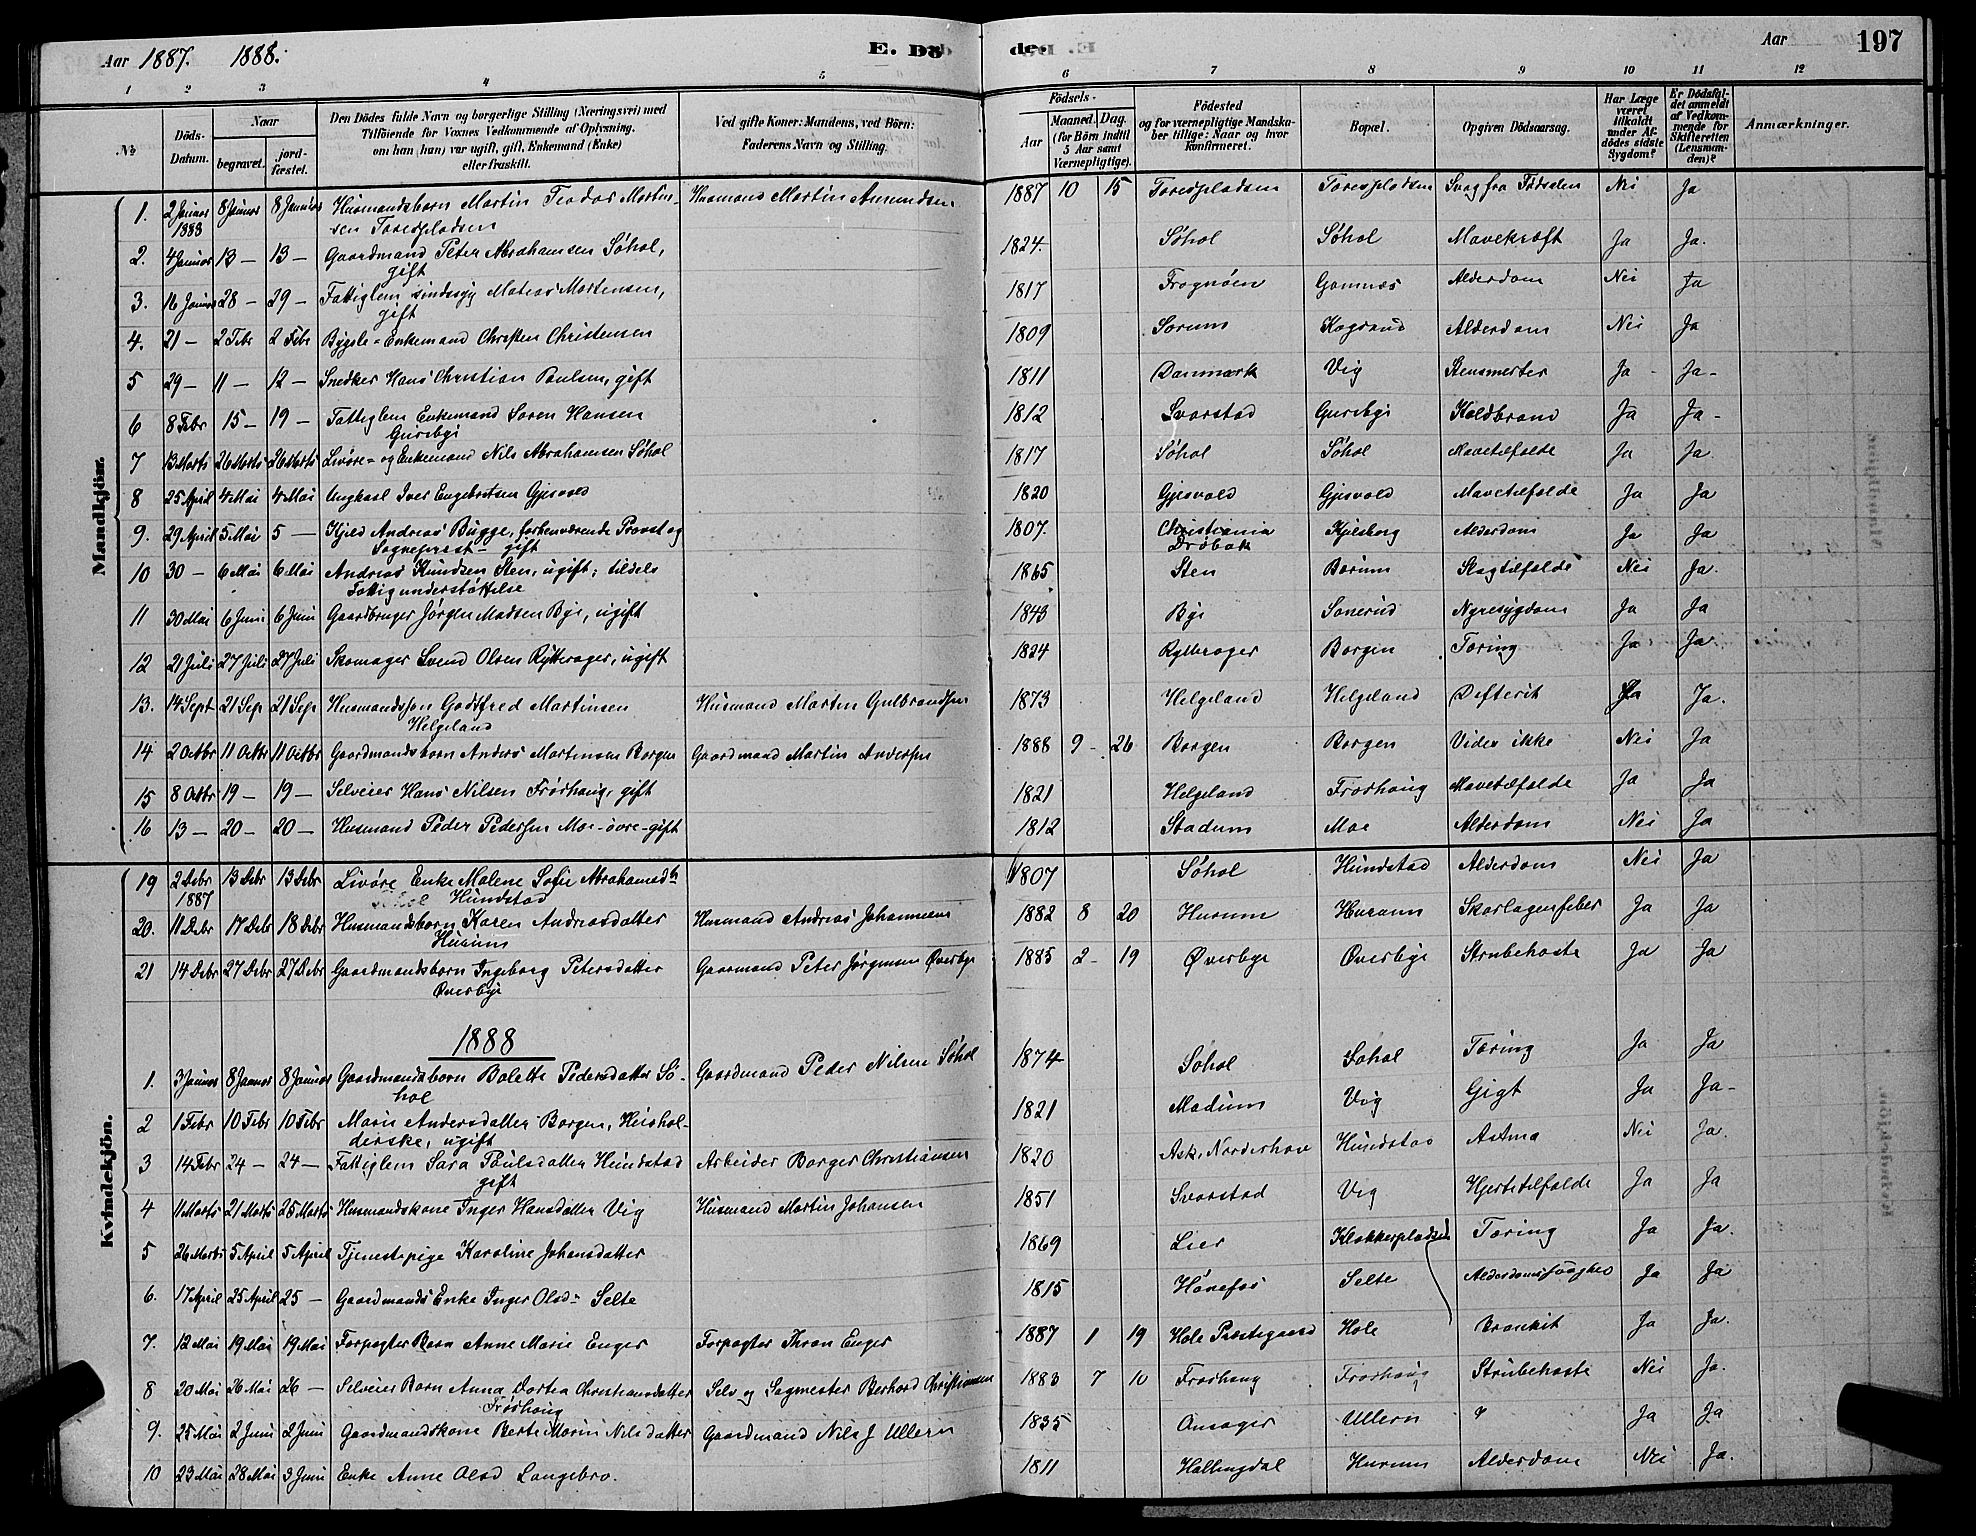 Aar 1887. 1888. E. Döde. Aar 197
1 2 3 4 5 6 7 8 9 10 11 12
№ Döds-Datum. Naar begravet. jord-fæstet. Den Dödes fulde Navn og borgerlige Stilling (Næringsvei) med Tilföiende for Voxnes Vedkommende af Oplysning, om han (hun) var ugift, gift, Enkemand (Enke) eller fraskilt. Ved gifte Koner: Mandens, ved Börn: Faderens Navn og Stilling. Födsels- Aar Maaned. Dag. (for Börn indtil 5 Aar samt Værnepligtige). Födested og for værnepligtige Mandskaber tillige: Naar og hvor Konfirmeret. Bopæl. Opgiven Dödsaarsag. Har Læge været tilkaldt under Afdödes sidste Sygdom? Er Dödsfaldet anmeldt af Vedkommende for Skifteretten (Lensmanden)? Anmærkninger.
Mandkjön.
1. 2 Januar 8 Januar 8 Januar Husmandsbarn Martin Teodor Martin- Husmand Martin Amundsen 1887 10 15 Torespladsen Torespladsen Svag fra Fødselen Nei Ja
1888 sen Torespladsen
2. 4 Januar 13 — 13 — Gaardmand Peter Abrahamsen Søhol, 1824. Søhol Søhol Mavekræft Ja Ja.
gift
3. 16 Januar 28 — 29 — Fattiglem sindssyg Matias Mortensen, 1817 Frognøen Gomnæs Alderdom Nei Ja
gift
4. 21 — 2 Febr 2 Febr Bygsle-Enkemand Christen Christensen 1809 Sørum Kogsrud Alderdom Nei Ja
5 29 — 11 — 12 — Snedker Hans Christian Poulsen, gift 1811 Danmark Vig Stensmerter Ja Ja
6 8 Febr 15 — 19 — Fattiglem Enkemand Soren Hansen 1812 Svarstad Gursbyi Koldbrand Ja Ja
Gursbyi
7 13 Marts 26 Marts 26 Marts Livøre- og Enkemand Nils Abrahamsen Søhol 1817 Søhol Søhol Mavetilfælde Ja Ja
8 25 April 4 Mai 4 Mai Ungkarl Iver Engebretsen Gjesvold 1820 Gjesvold Gjesvold Mavetilfælde Ja Ja
9. 29 April 5 Mai 5 — Kjeld Andreas Bugge, forhenværende Provst og 1807. Christiania Kjelsberg Alderdom Ja Ja
Sognepræst - gift Drøbak
10 30 — 6 Mai 6 Mai Andreas Knudsen Sten, ugift; tildels 1865 Sten Børum Slagtilfælde Nei Ja.
Fattigunderstøttelse
11 30 Mai 6 Juni 6 Juni Gaardbruger Jørgen Madsen Bye, ugift 1843 Bye Sonerud Nyresygdom Ja Ja
12 21 Juli 27 Juli 27 Juli Skomager Svend Olsen Rytterager, ugift 1824 Rytterager Borgen Tæring Ja Ja
13. 14 Sept 21 Sep 21 Sep Husmandssøn Godtfred Martinsen Husmand Martin Gulbrandsen 1873 Helgeland Helgeland Difterit Ja Ja.
Helgeland
14 2 Octbr 11 Octbr 11 Octbr Gaardmandsbarn Anders Martinsen Borgen Gaardmand Martin Andersen 1888 9 - 26 Borgen Borgen Vides ikke Nei Ja
15 8 Octbr 19 — 19 — Selveier Hans Nilsen Frøshaug, gift 1821 Helgeland Frøshaug Mavetilfælde Ja Ja
16 13 — 20 — 20 — Husmand Peder Pedersen Moe-øvre-gift 1812 Stadum Moe Alderdom Nei Ja
Kvindekjön.
19 2 Debr 13 Debr 13 Debr Livøre Enke Malene Sofie Abrahamsdtr 1807 Søhol Hundstad Alderdom Nei Ja
1887 Hundstad
20. 11 Debr 17 Debr 18 Debr Husmandsbarn Karen Andreasdatter Husmand Andreas Johannesen 1882 8 20 Hurum Hurum Skarlagensfeber Ja Ja
Hurum
21 14 Debr 27 Debr 27 Debr Gaardmandsbarn Ingeborg Petersdatter Gaarmand Peter Jørgensen Øverbye 1885 2 - 19 Øverbye Øverbye Strubehoste Ja Ja
Øverbye
1888
1. 3 Januar 8 Januar 8 Januar Gaardmandsbarn Bolette Pedersdatter Sø- Gaardmand Peder Nilsen Søhol 1874 Søhol Søhol Tæring Ja Ja
hol
2 1 Febr 10 Febr 10 Febr Marie Andersdatter Borgen, Hushol- 1821 Modum Vig Gigt Ja Ja
derske, ugift
3 14 Febr 24 — 24 — Fattiglem Sara Poulsdatter Hundstad Arbeider Borger Christiansen 1820 Ask, Norderhov Hundstad Astma Nei Ja.
gift
4 11 Marts 21 Marts 25 Marts Husmandskone Inger Hansdatter Vig Husmand Martin Johansen 1851 Svarstad Vig Hjertetilfælde Ja Ja
5 26 Marts 5 April 5 April Tjenestepige Karoline Johansdatter 1869 Lier Klokkerpladsen Tæring Ja Ja.
6. 17 April 25 April 25 — Gaardmands Enke Inger Olsdr Selte 1815 Hønefos Selte Alderdomssvaghed Ja Ja
7. 12 Mai 19 Mai 19 Mai Forpagter Barn Anne Marie Enger Forpagter Thron Enger 1887 1 19 Hole Præstegaard Hole Bronkit Ja Ja.
8 20 Mai 26 Mai 26 — Selveier Barn Anna Dortea Christiansdatter Selv og Sagmester Berhard Christiansen 1883 7 10 Frøshaug Frøshaug Strubehoste Nei Ja.
Frøshaug
9. 25 Mai 2 Juni 2 Juni Gaardmandskone Berte Marie Nilsdatter Gaardmand Nils J Ullern 1835 Onsager Ullern ? Ja Ja
10 23 Mai 28 Mai 3 Juni Enke Anne Olsd Langebro. 1811 Hallingdal Hurum Alderdom Nei Ja.